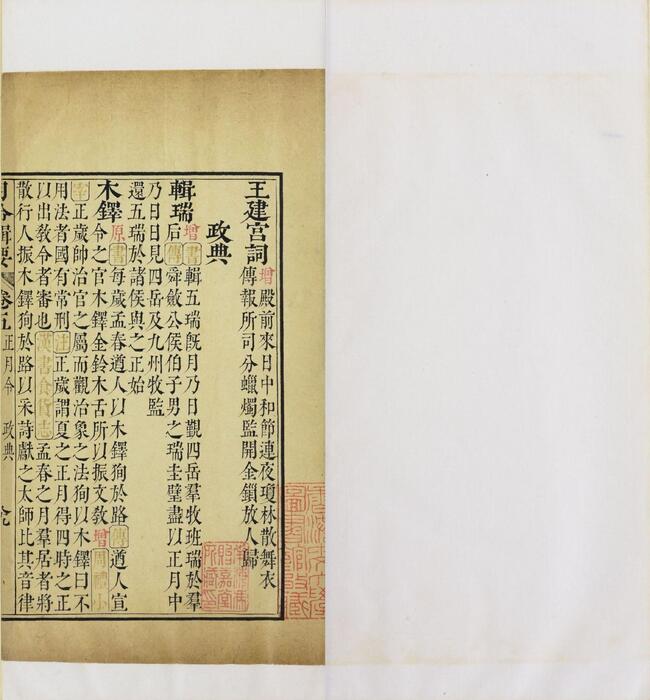 王建宮詞增殿前來日中和節連夜瓊林散舞衣
傳報所司分蠟燭監開金鎖放人歸
政典
輯瑞增書輯五瑞旣月乃日覲四岳羣牧班瑞於羣
后傳舜斂公侯伯子男之瑞圭璧盡以正月中
乃日日見四岳及九州牧監
還五瑞於諸侯與之正始
木鐸原書每歲孟春遒人以木鐸狥於路傳遒人宣
令之官木鐸金鈴木舌所以振文敎增周禮小
宰正歲帥治官之屬而觀治象之法狥以木鐸曰不
用法者國有常刑注正歲謂夏之正月得四時之正
以出敎令者審也漢書食貨志孟春之月羣居者將
散行人振木鐸狥於路以采詩獻之太師比其音律
月令輯要 卷五 正月令 政典